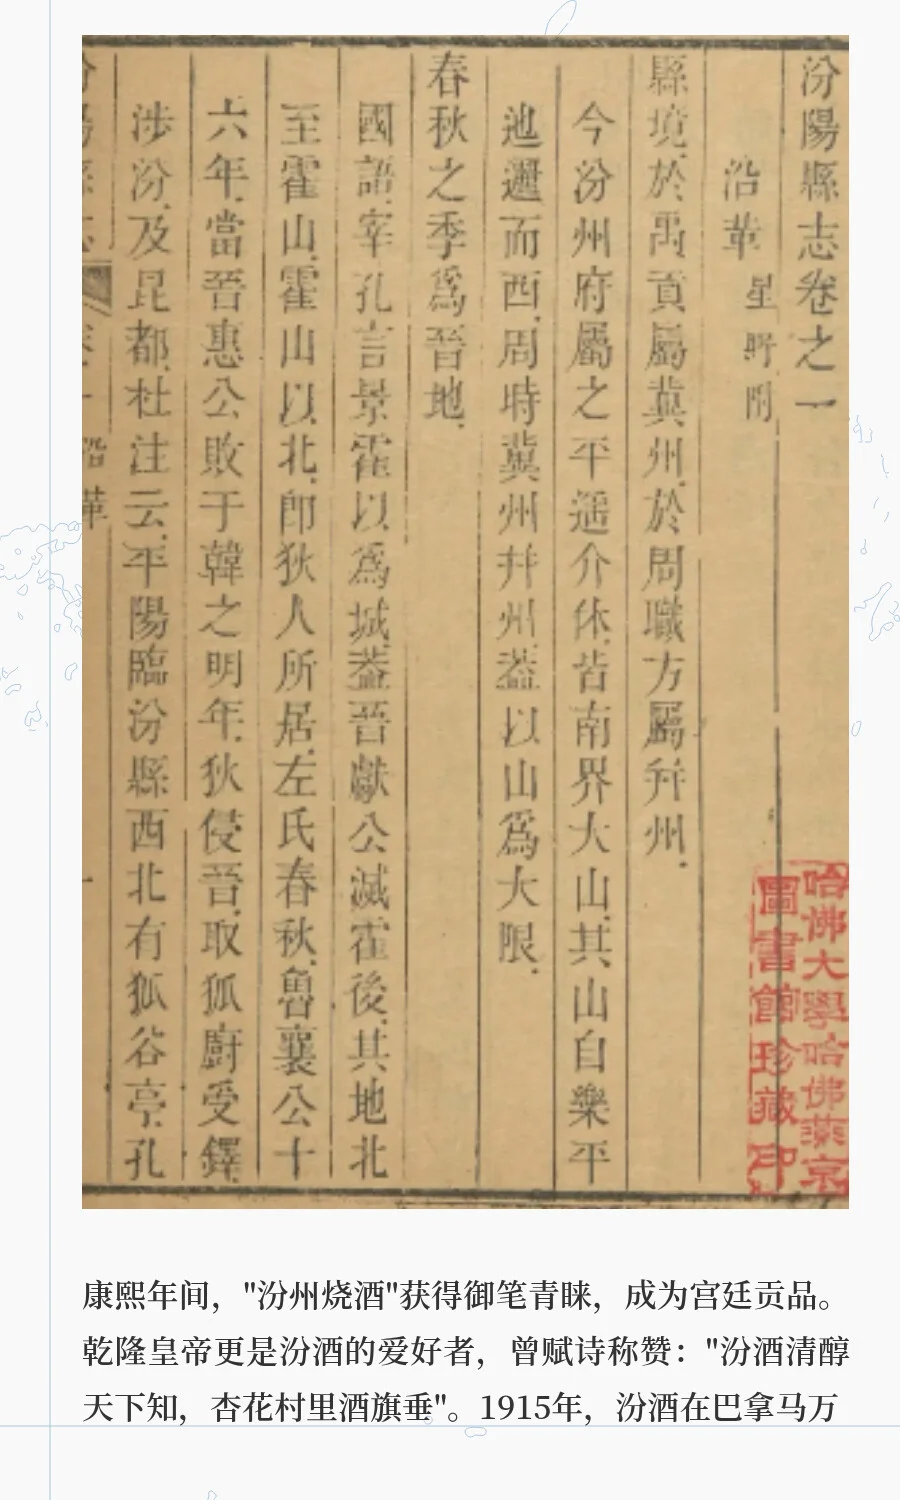 汾陽縣志卷之一
沿革 星野附
縣境於禹貢屬冀州於周職方屬幷州
今汾州府屬之平遥介休皆南界大山其山自樂平
迆邐而西周時冀州幷州蓋以山爲大限
春秋之季爲晉地
國語宰孔言景霍以爲城蓋晉獻公滅霍後其地北
至霍山霍山以北卽狄人所居左氏春秋魯襄公十
六年當晉惠公敗于韓之明年狄侵晉取狐廚受鐸
涉汾及昆都杜注云平陽臨汾縣西北有狐谷亭孔
沿革
哈佛大學哈佛燕京
圖書館珍藏印
康熙年间，"汾州烧酒"获得御笔青睐，成为宫廷贡品。
乾隆皇帝更是汾酒的爱好者，曾赋诗称赞："汾酒清醇
天下知，杏花村里酒旗垂"。1915年，汾酒在巴拿马万